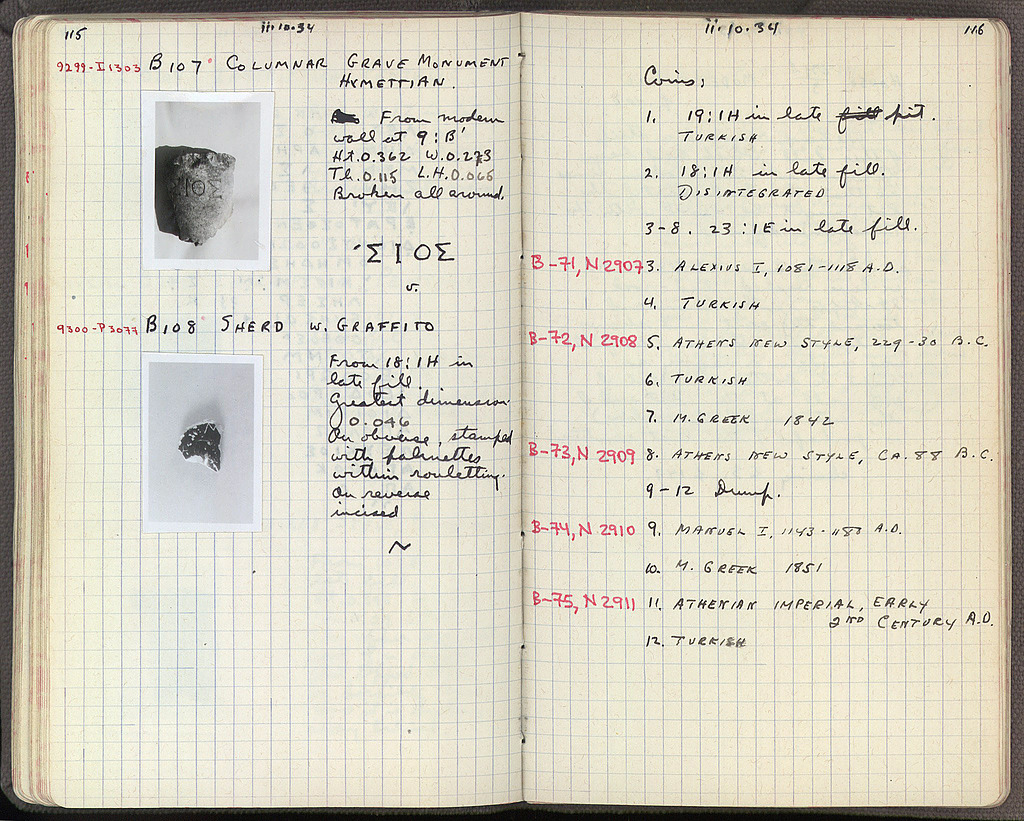 115
ii·10·34
9299-I1303 B107 COLUMNAR GRAVE MONUMENT
HYMETTIAN.
From modern
wall at 9:B'
Ht.0.362 W.0.273
Th.0.115 L.H.0.066
Broken all around.
ΙΟΣ
ΣΙΟΣ
v.
9300-P3077 B108 SHERD W. GRAFFITO
From 18:1H in
late fill.
Greatest dimension
0.046
On obverse, stamped
with palmettes
within rouletting.
On reverse
incised
ii·10·34
116
Coins;
1. 19:1H in late fill pit.
TURKISH
2. 18:1H in late fill.
DISINTEGRATED
3-8. 23:1E in late fill.
B-71, N2907 3. ALEXIUS I, 1081-1118 A.D.
4. TURKISH
B-72, N2908 5. ATHENS NEW STYLE, 229-30 B.C.
6. TURKISH
7. M. GREEK 1842
B-73, N2909 8. ATHENS NEW STYLE, CA. 88 B.C.
9-12 Dump.
B-74, N2910 9. MANUEL I, 1143-1180 A.D.
10. M. GREEK 1851
B-75, N2911 11. ATHENIAN IMPERIAL, EARLY
2ND CENTURY A.D.
12. TURKISH